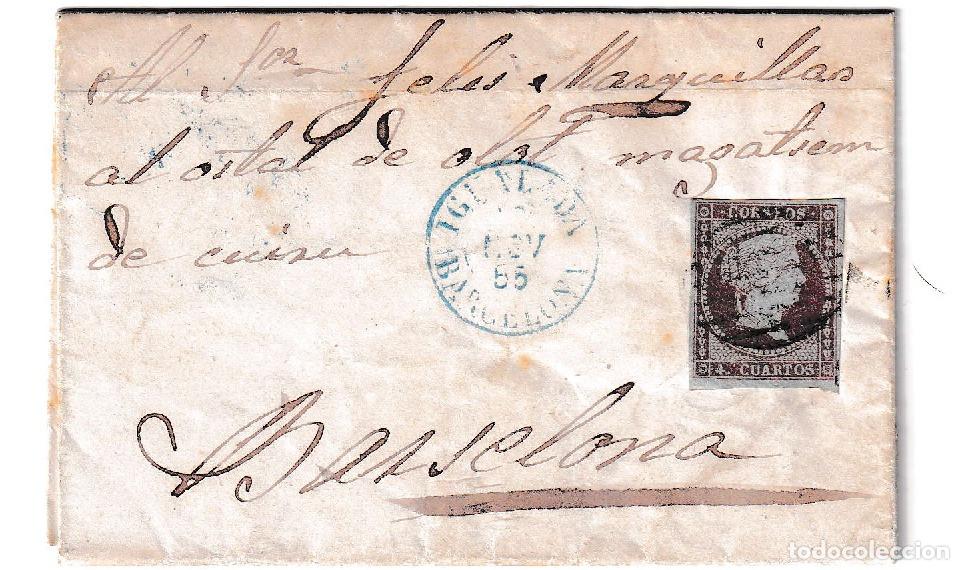 Al Sor Felis Marquillas
al ostal de olot magatsem
de cuiru
IGUALADA
NOV
55
BARCELONA
CORREOS
4 CUARTOS
Barselona
todocoleccion